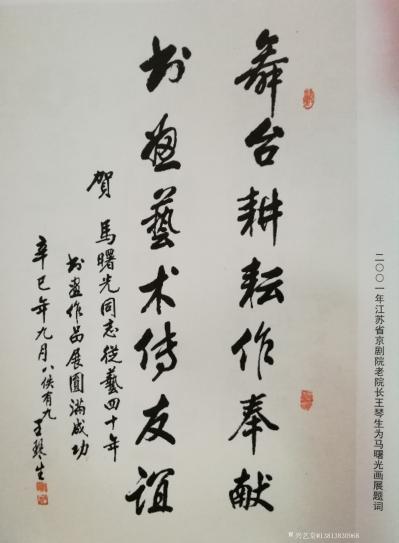 舞台耕耘作奉献
书画藝术傳友谊
賀馬曙光同志從藝四十年
书畫作品展圓满成功
辛巳年九月八佚有九王琴生
二〇〇一年江苏省京剧院老院长王琴生为马曙光画展题词
兴艺京@13813830968